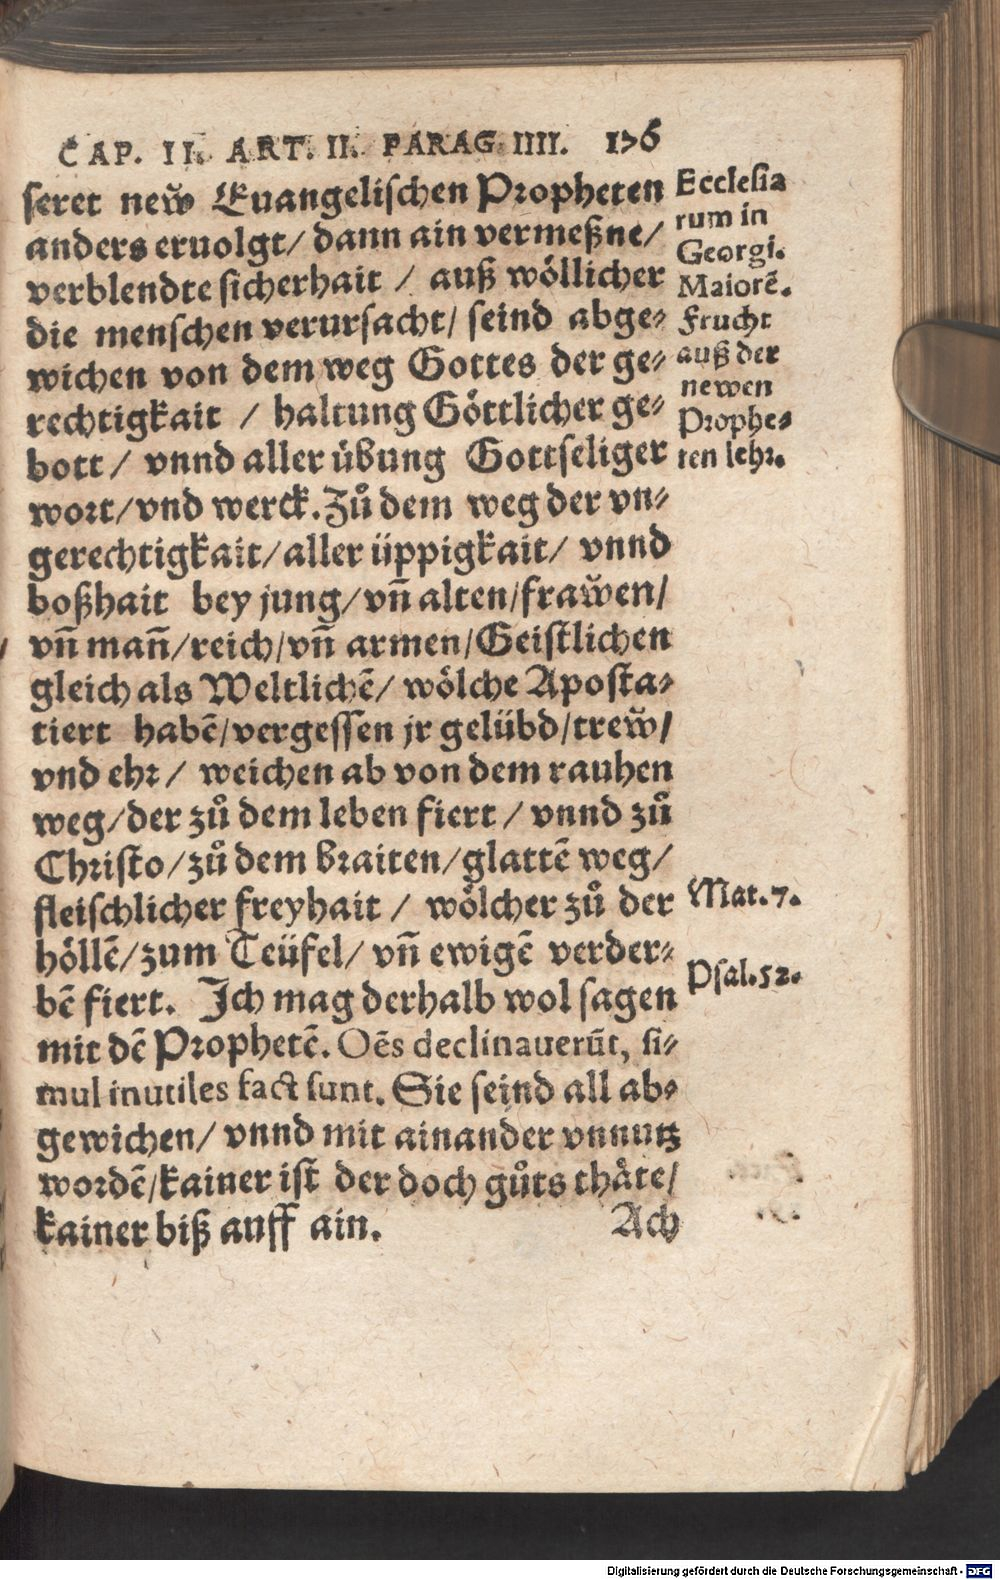 CAP. II. ART. II. PARAG. IIII. 176
seret new̆ Euangelischen Propheten
anders eruolgt/ dann ain vermeßne/
verblendte sicherhait / auß wöllicher
die menschen verursacht/ seind abge-
wichen von dem weg Gottes der ge-
rechtigkait / haltung Göttlicher ge-
bott/ vnnd aller übung Gottseliger
wort/ vnd werck. Zů dem weg der vn-
gerechtigkait/ aller üppigkait/ vnnd
boßhait bey jung/ vñ alten/ fraw̆en/
vñ mañ/ reich/ vñ armen/ Geistlichen
gleich als Weltlichẽ/ wölche Aposta-
tiert habẽ/ vergessen jr gelübd/ trew̆/
vnd ehr/ weichen ab von dem rauhen
weg/ der zů dem leben fiert / vnnd zů
Christo/ zů dem braiten/ glattẽ weg/
fleischlicher freyhait / wölcher zů der
höllẽ/ zum Teüfel/ vñ ewigẽ verder-
bẽ fiert. Ich mag derhalb wol sagen
mit dẽ Prophetẽ. Oẽs declinauerũt, si-
mul inutiles fact sunt. Sie seind all ab-
gewichen/ vnnd mit ainander vnnutz
wordẽ/ kainer ist der doch gůts thåte/
kainer biß auff ain.
Ach
Ecclesia
rum in
Georgi.
Maiorẽ.
Frucht
auß der
newen
Prophe-
ten lehr.
Mat. 7.
Psal. 52.
Digitalisierung gefördert durch die Deutsche Forschungsgemeinschaft - DFG